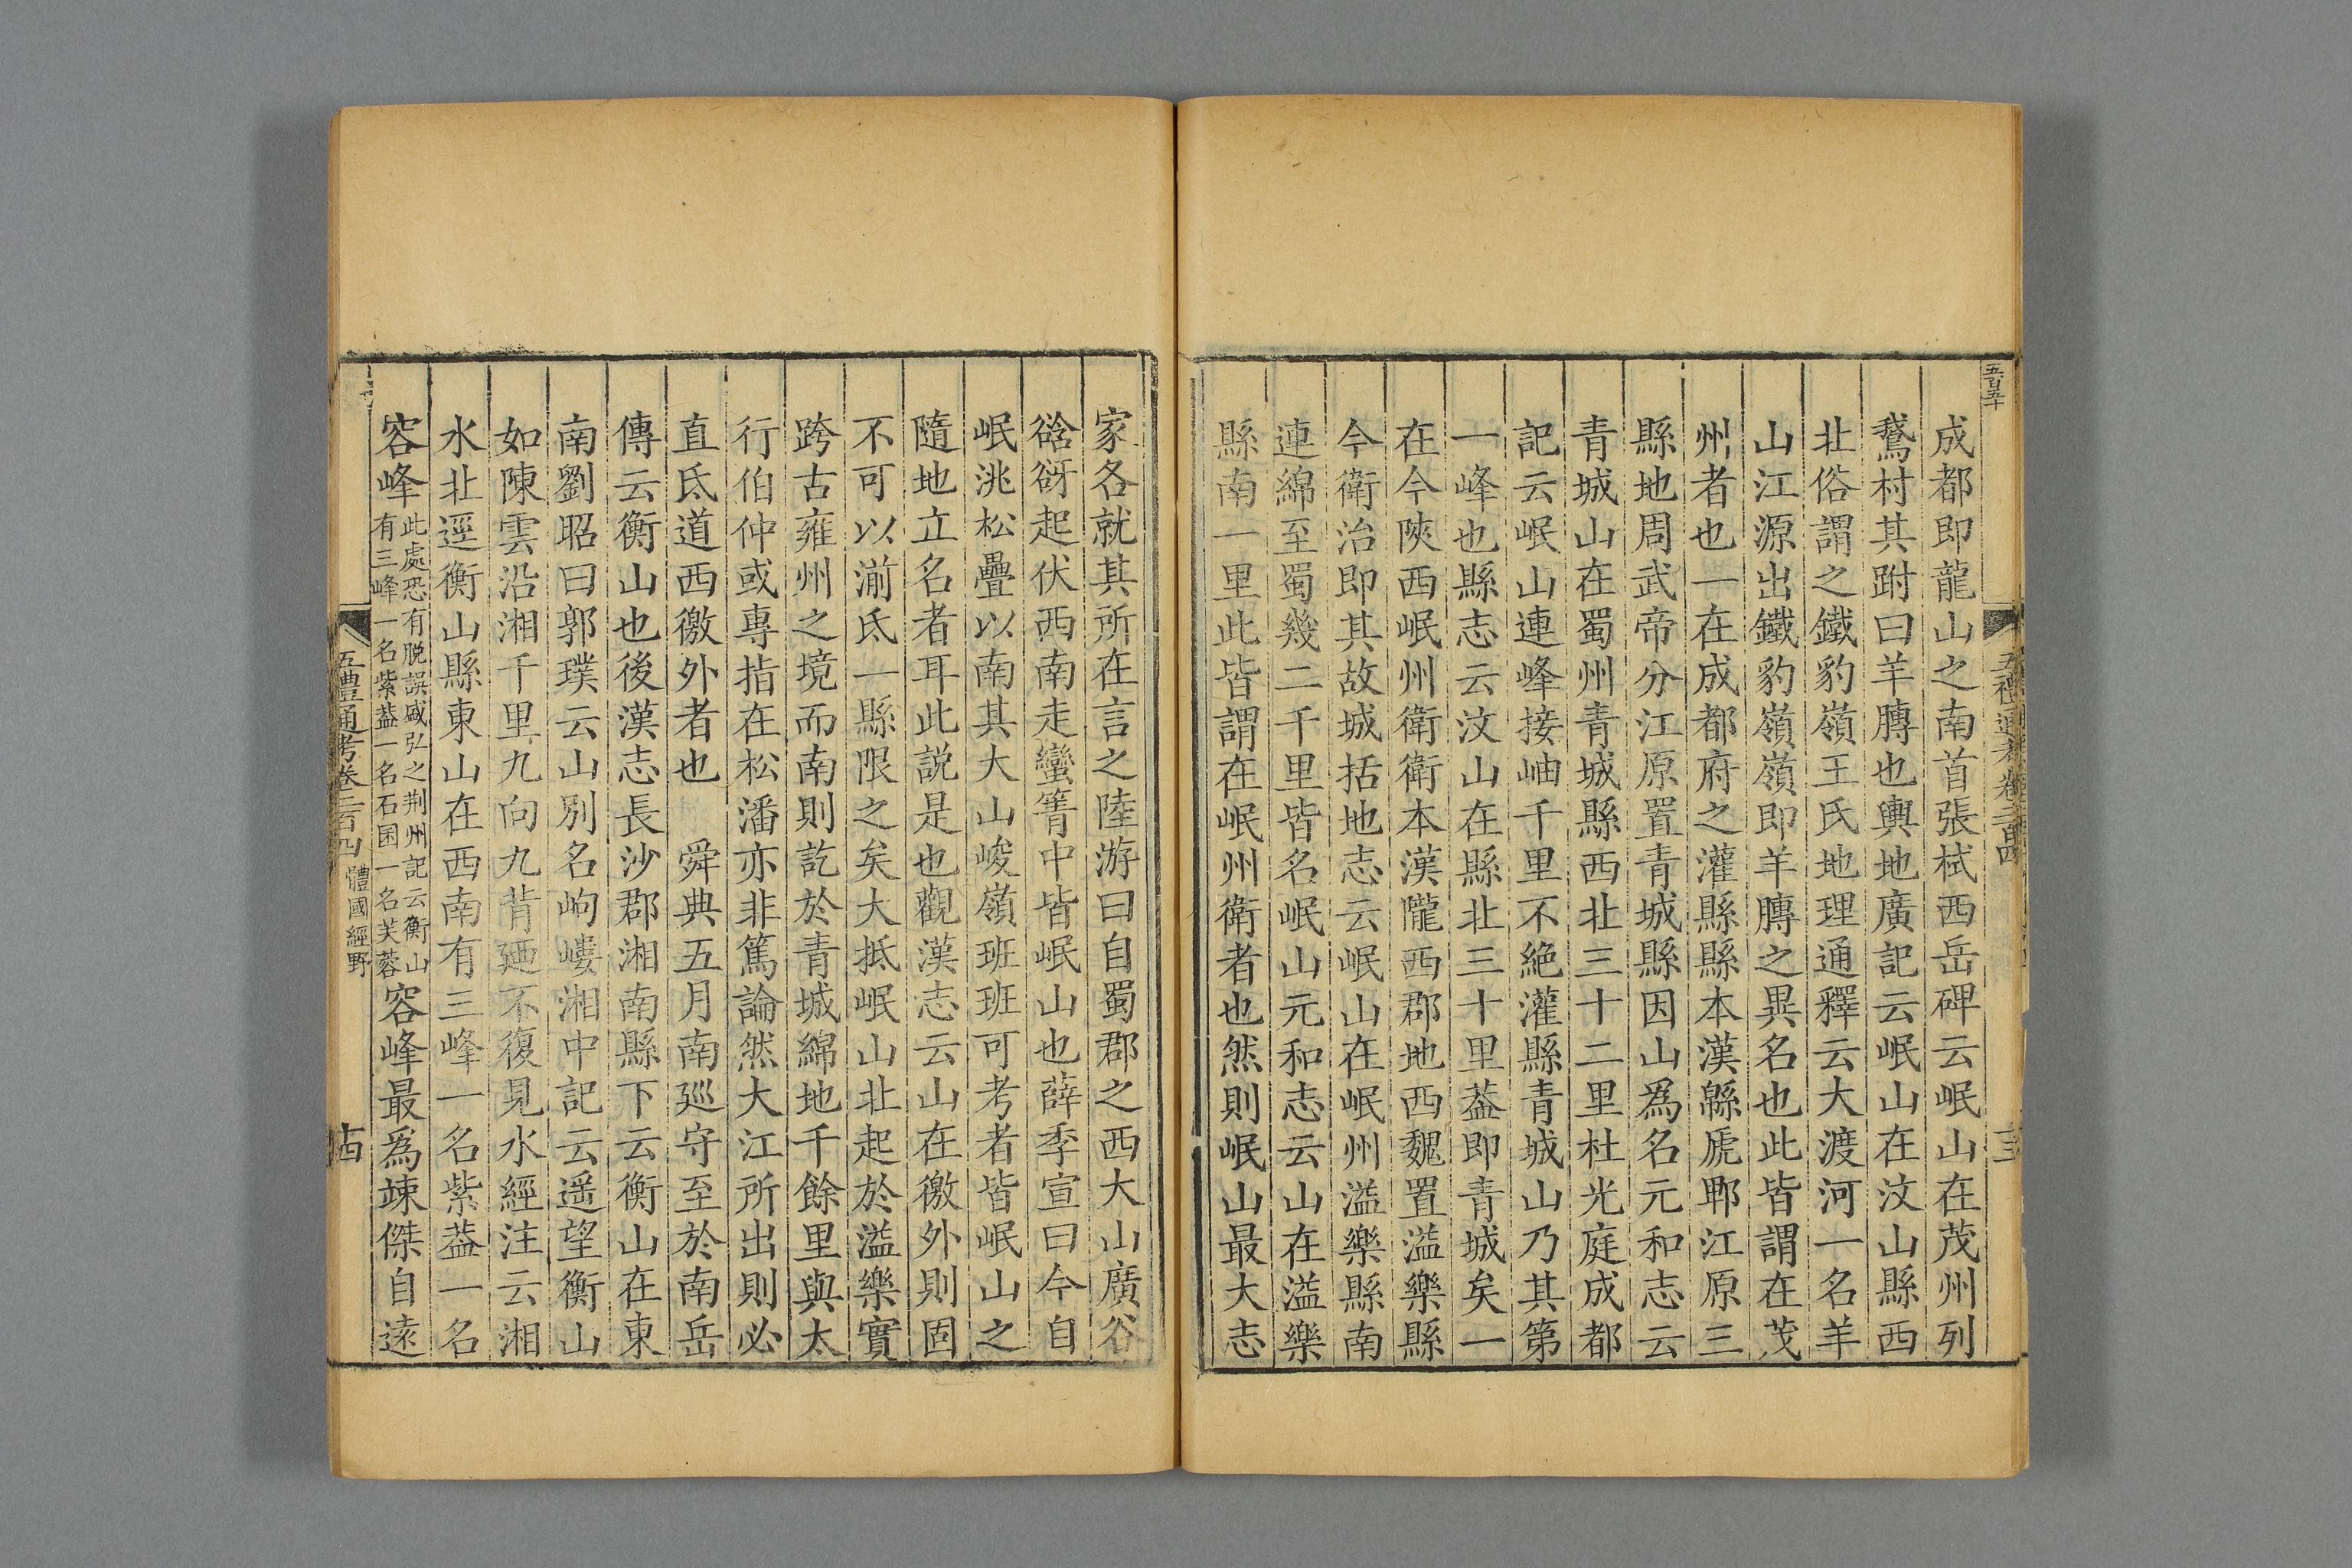 五百五十
五禮通考卷二百四
十三
成都即龍山之南首張栻西岳碑云岷山在茂州列
鵞村其跗曰羊膊也輿地廣記云岷山在汶山縣西
北俗謂之鐵豹嶺王氏地理通釋云大渡河一名羊
山江源出鐵豹嶺嶺即羊膊之異名也此皆謂在茂
州者也一在成都府之灌縣縣本漢緜虒郫江原三
縣地周武帝分江原置青城縣因山爲名元和志云
青城山在蜀州青城縣西北三十二里杜光庭成都
記云岷山連峰接岫千里不絶灌縣青城山乃其第
一峰也縣志云汶山在縣北三十里葢即青城矣一
在今陝西岷州衛衛本漢隴西郡地西魏置溢樂縣
今衛治即其故城括地志云岷山在岷州溢樂縣南
連綿至蜀幾二千里皆名岷山元和志云山在溢樂
縣南一里此皆謂在岷州衛者也然則岷山最大志
家各就其所在言之陸游曰自蜀郡之西大山廣谷
谽谺起伏西南走蠻箐中皆岷山也薛季宣曰今自
岷洮松疊以南其大山峻嶺班班可考者皆岷山之
隨地立名者耳此説是也觀漢志云山在徼外則固
不可以湔氐一縣限之矣大抵岷山北起於溢樂實
跨古雍州之境而南則訖於青城綿地千餘里與太
行伯仲或專指在松潘亦非篤論然大江所出則必
直氐道西徼外者也　舜典五月南廵守至於南岳
傳云衡山也後漢志長沙郡湘南縣下云衡山在東
南劉昭曰郭璞云山別名岣嶁湘中記云遥望衡山
如陳雲沿湘千里九向九背廼不復見水經注云湘
水北逕衡山縣東山在西南有三峰一名紫葢一名
容峰此處恐有脱誤盛弘之荆州記云衡山
有三峰一名紫葢一名石囷一名芙蓉容峰最爲竦傑自逺
五禮通考卷二百四　體國經野
十四